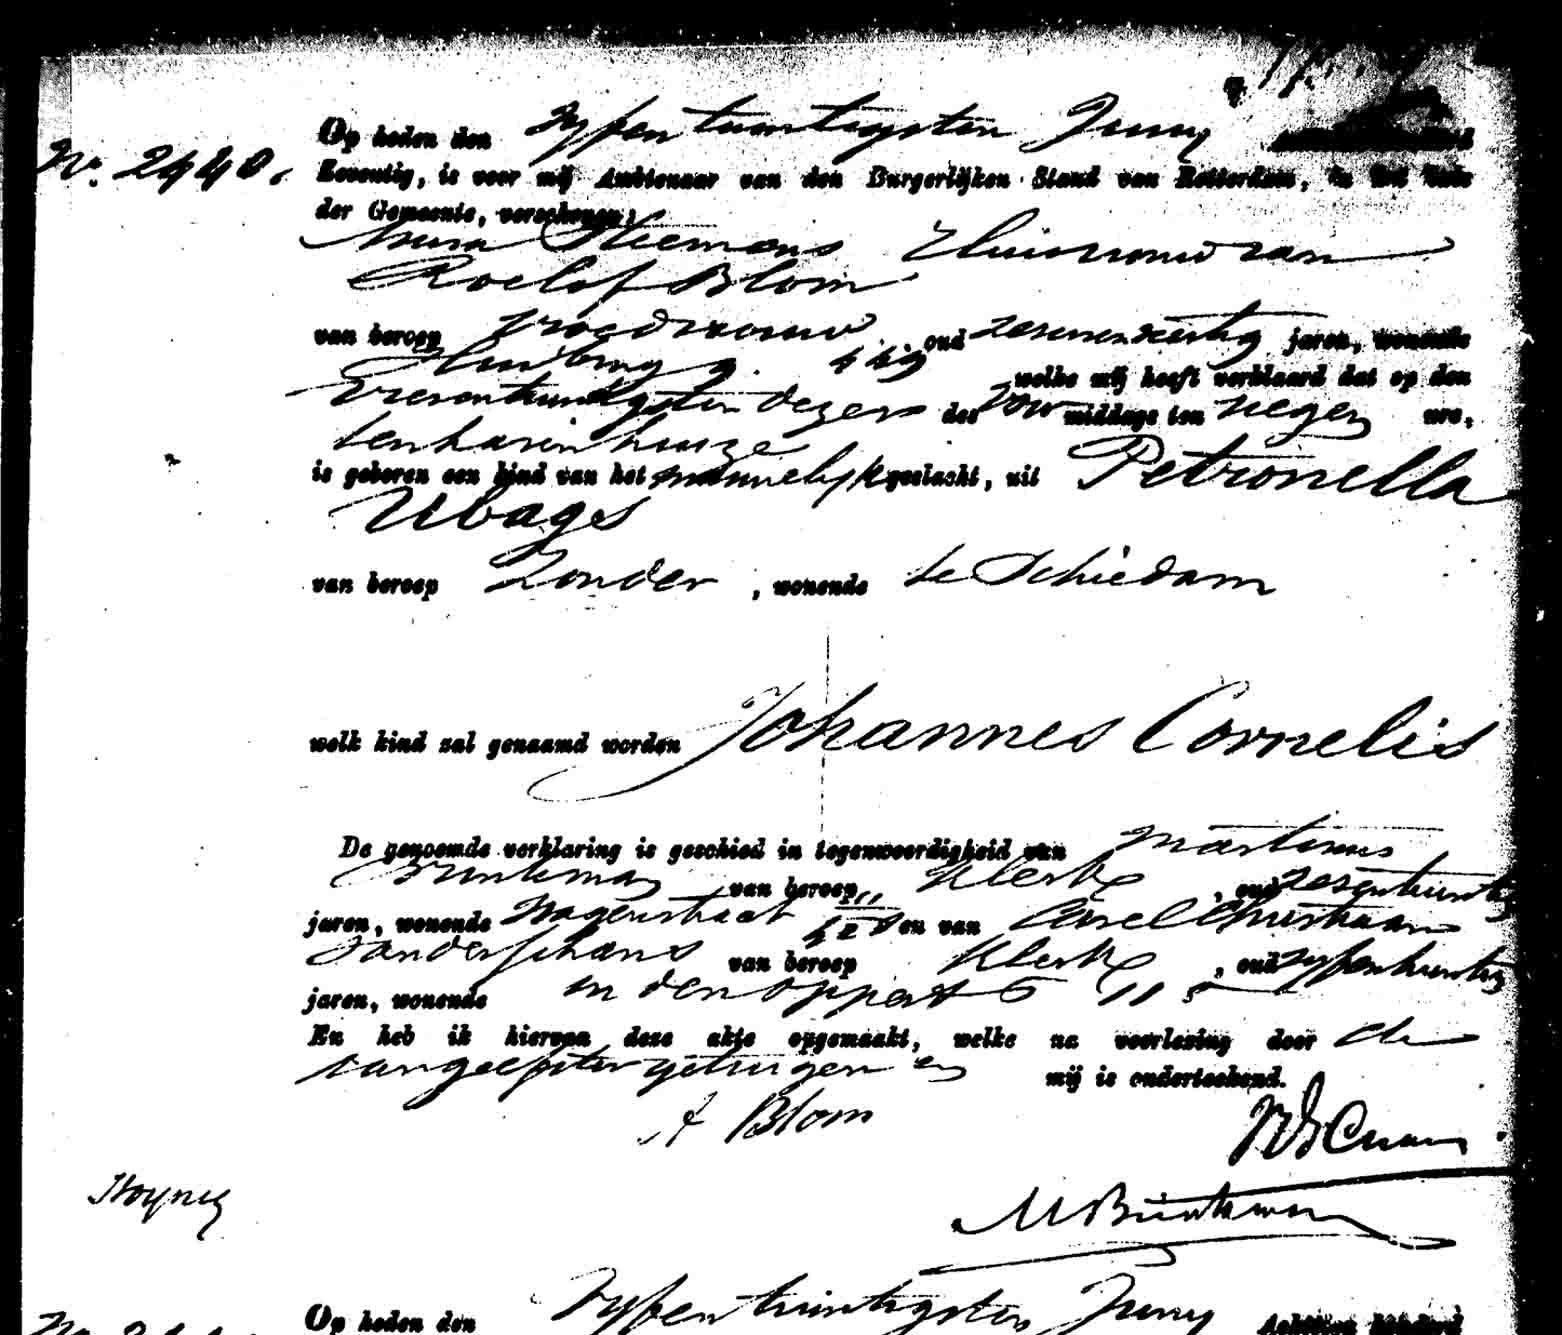 Op heden den Vyfentwintigsten Juny
No. 2440. Zeventig, is voor mij Ambtenaar van den Burgerlijken Stand van Rotterdam, in het Huis
der Gemeente, verschenen:
Anna Huisvrouw van
Roelof Blom
van beroep vroedvrouw, oud zevenenveertig jaren, wonende
welke mij heeft verklaard dat op den
Drieentwintigsten dezer des voor middags ten negen ure,
ten haren huize
is geboren een kind van het mannelijk geslacht, uit Petronella
Ubags
van beroep Zonder, wonende te Schiedam
welk kind zal genaamd worden Johannes Cornelis
De genoemde verklaring is geschied in tegenwoordigheid van Martinus
van beroep Klerk, oud zesentwintig
jaren, wonende Wagenstraat en van Carel Christiaan
van der Schans van beroep Klerk, oud vyfentwintig
jaren, wonende in den Oppert
En heb ik hiervan deze akte opgemaakt, welke na voorlezing door de
aangeefster getuigen en mij is onderteekend.
A Blom
Op heden den Vyfentwintigsten Juny Achttien honderd